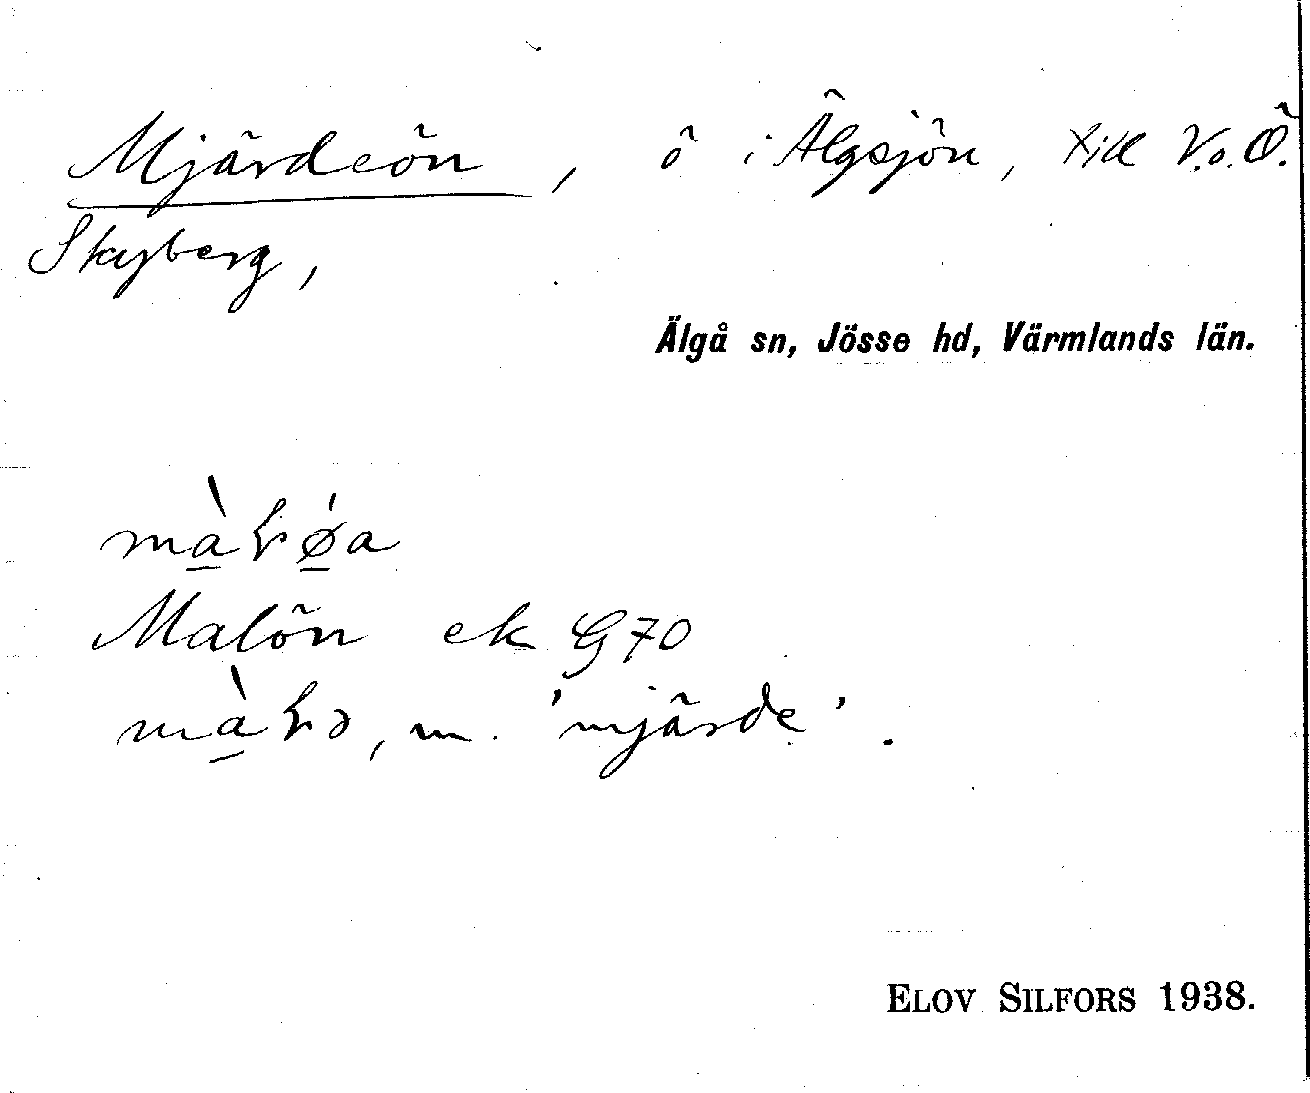 Mjärdeön, ö i Älgsjön, till V.o.Ö.
Skyberg,
Älgå sn, Jösse hd, Värmlands län.
Malön ek G70
m. 'mjärde'.
ELOV SILFORS 1938.